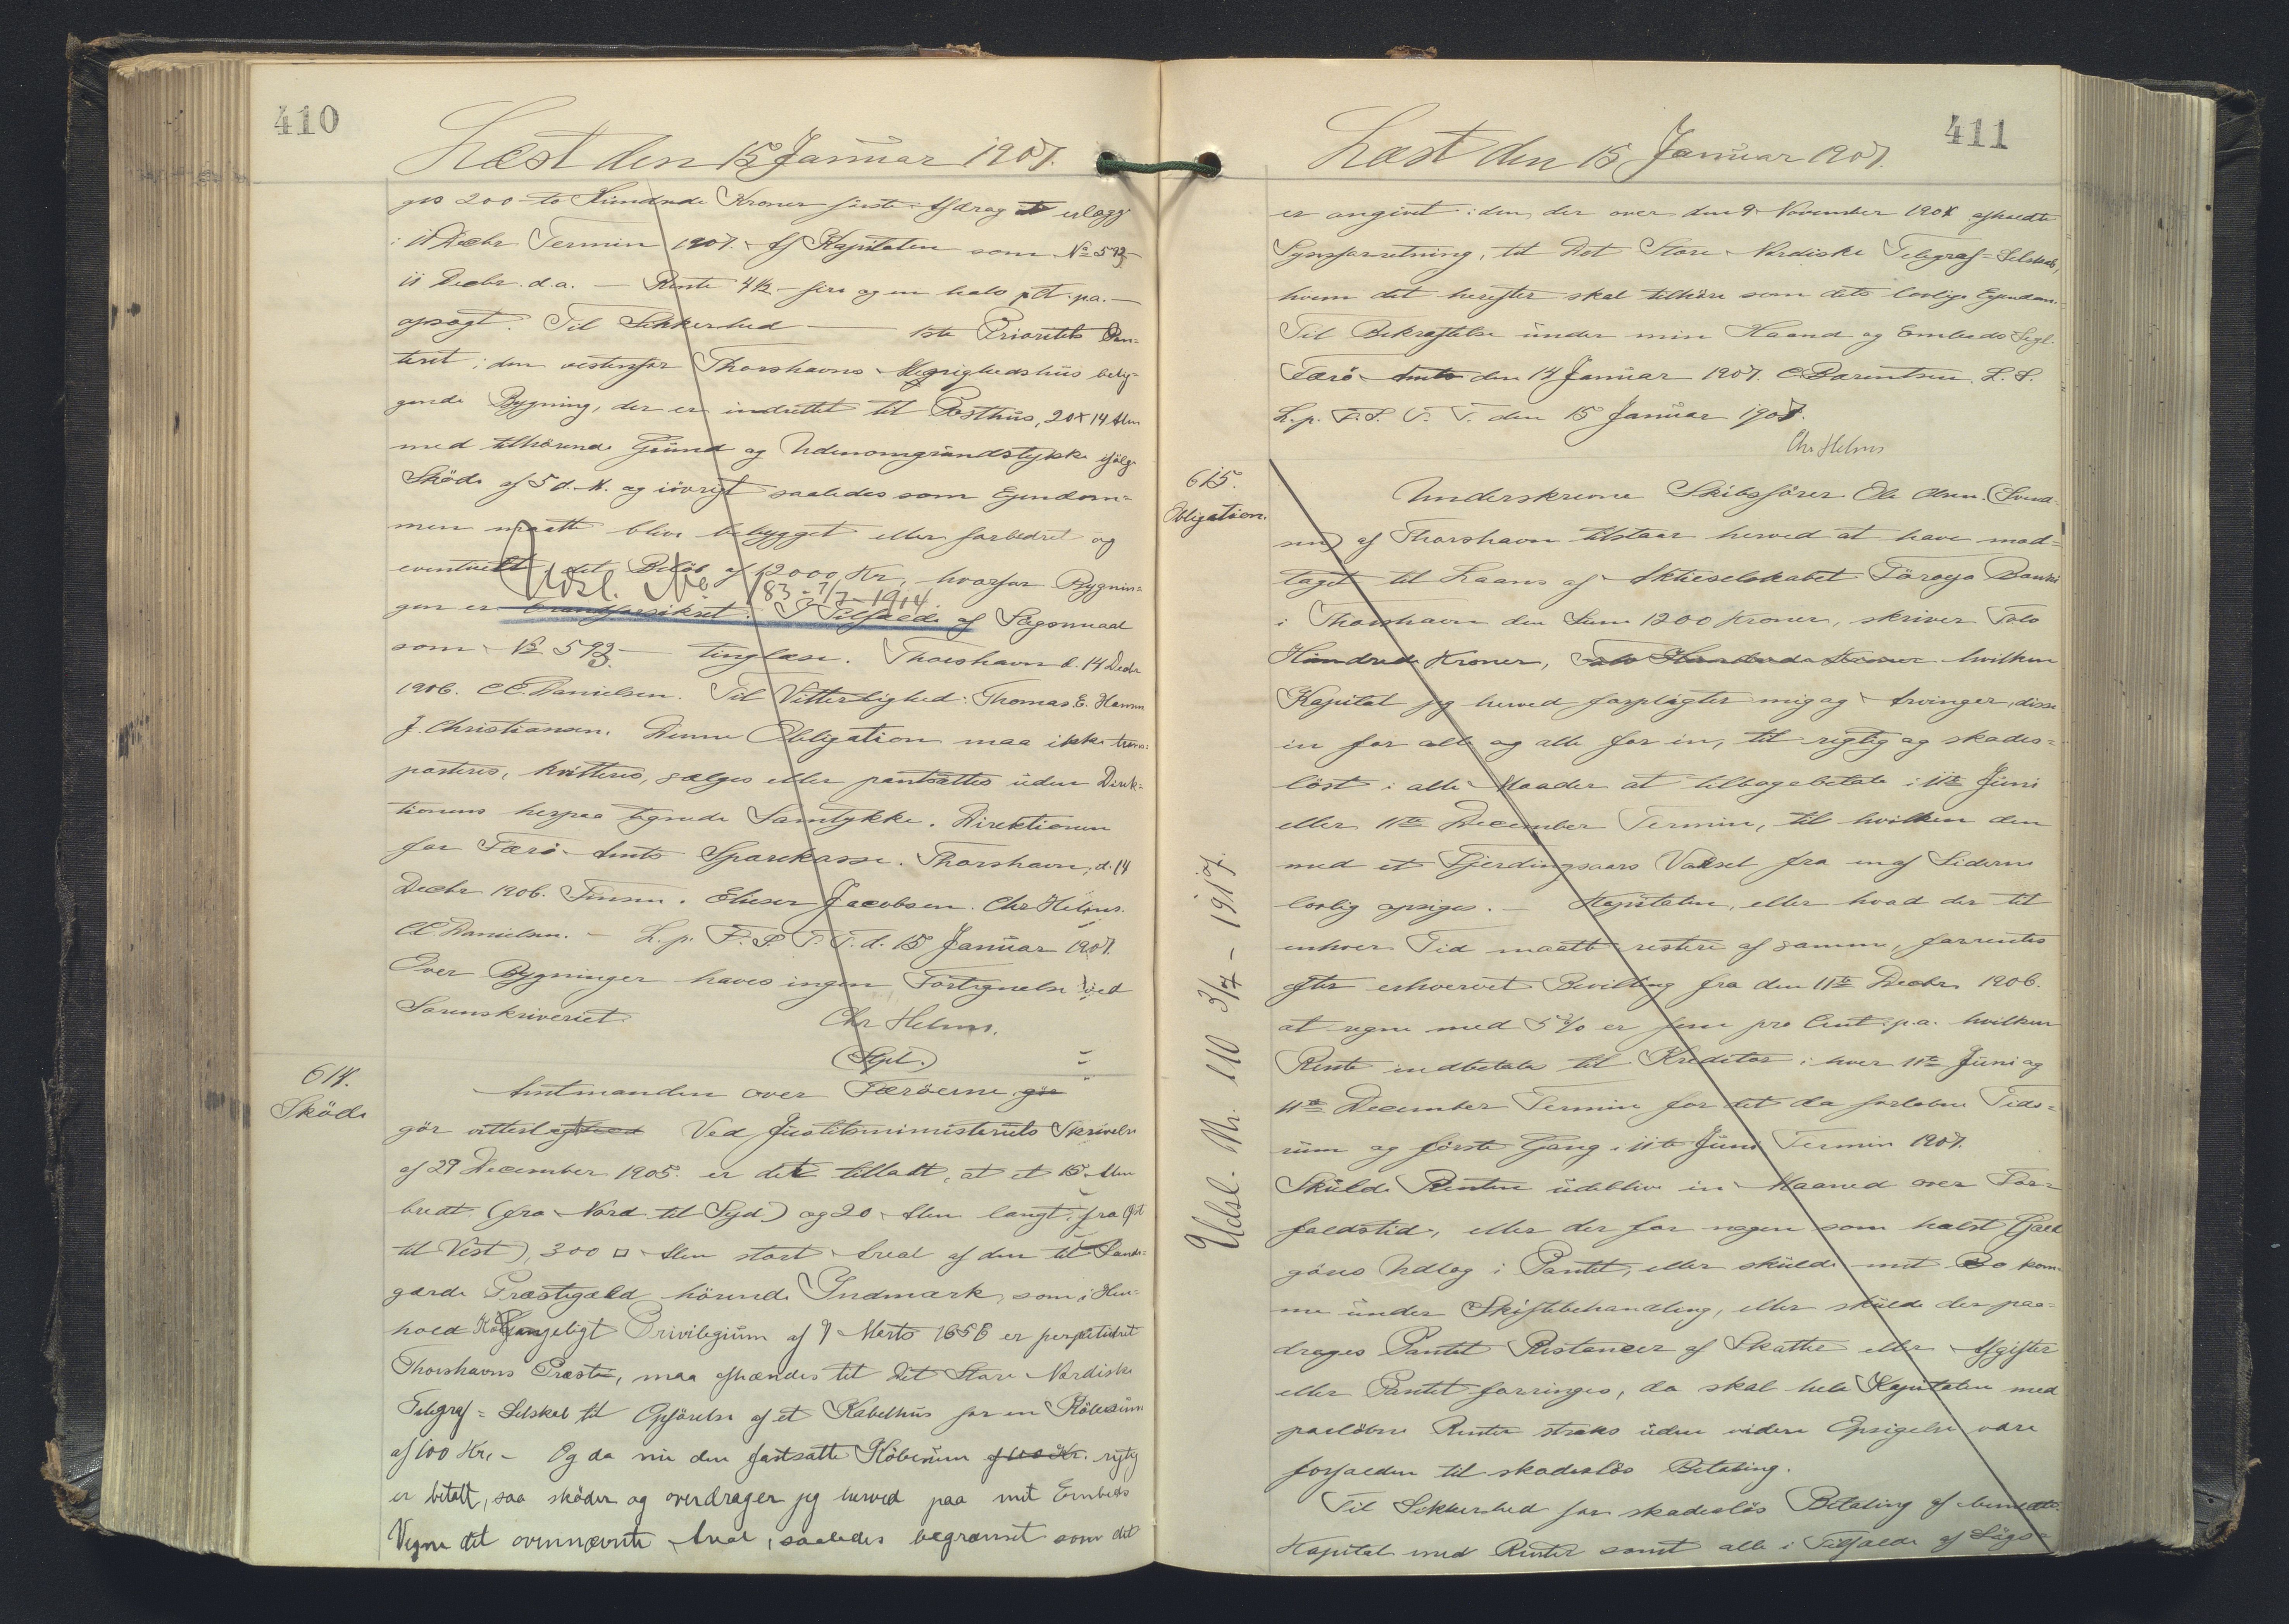 410
Læst den 15 Januar 1907.
ges 200 to Hundrede Kroner første Afdrag at erlægg
i 11 Decbr Termin 1907. Af Kapitalen som No 593
11 Decbr. d.a. — Rente 4½ fire og en halv pCt. p.a. —
opsagt. Til Sikkerhed — 1ste Prioritets Pan-
teret i den vestenfor Thorshavns Øvrighedshus belig-
gende Bygning, der er indrettet til Posthus, 20 x 14 Alen
med tilhørende Grund og Udenomgrundstykke ifølge
Skøde af 5 d. M. og iøvrigt saaledes som Ejendom-
men maatte blive bebygget eller forbedret og
eventuelt det Beløb af 12000 Kr, hvorfor Bygnin-
Udsl. No 183 - 7/7 - 1914.
gen er brandforsikret. I Tilfælde af Søgsmaal
som No 593 — tinglæse. Thorshavn d. 14 Decbr
1906. C.C. Danielsen. Til Vitterlighed: Thomas E. Hansen
J. Christiansen. Denne Obligation maa ikke trans-
porteres, kvitteres, sælges eller pantsættes uden Direk-
tionens herpaa tegnede Samtykke. Direktionen
for Færø Amts Sparekasse. Thorshavn, d. 14
Decbr 1906. Elieser Jacobsen. Chr Helms.
CC. Danielsen. — L. p. F. S. T. T. d. 15 Januar 1907.
Over Bygninger haves ingen Fortegnelse ved
Sorenskriveriet.
Chr Helms.
(Stpl.)
614.
Skøde
Amtmanden over Færøerne gør
gør vitterligt Ved Justitsministeriets Skrivelse
af 29 December 1905 er det tilladt, at et 15 Alen
bredt (fra Nord til Syd) og 20 Alen langt (fra Øst
til Vest), 300 □ Alen stort Areal af den til Sands-
gærde Præstegæld hørende Indmark, som i Hen-
hold Kongeligt Privilegium af 9 Marts 1656 er perpetueret
Thorshavns Præster, maa afhændes til Det Store Nordiske
Telegraf-Selskab til Opførelse af et Kabelhus for en Købesum
af 100 Kr. — Og da nu den fastsatte Købesum af 100 Kr. rigtig
er betalt, saa skøder og overdrager jeg herved paa mit Embeds
Vegne det ovennævnte Areal, saaledes begrænset som det
411
Læst den 15 Januar 1907.
er angivet i den, der over den 9 November 1904 afholdte
Synsforretning, til Det Store Nordiske Telegraf-Selskab,
hvem det herefter skal tilhøre som dets lovlige Ejendom.
Til Bekræftelse under min Haand og Embeds Segl.
Færø Amt den 14 Januar 1907. C. Bærentsen. L. S.
L. p. F. S. T. T. den 15 Januar 1907.
Chr Helms
615.
Obligation.
Underskrevne Skibsfører Ole Olsen (Svend-
sen) af Thorshavn tilstaar herved at have mod-
taget til Laans af Aktieselskabet Föroya Banki
i Thorshavn den Sum 1200 Kroner, skriver Tolv
Hundrede Kroner, Tolv Hundrede Kroner hvilken
Kapital jeg herved forpligter mig og Arvinger, disse
en for alle og alle for en, til rigtig og skades-
løst i alle Maader at tilbagebetale i 11te Juni
eller 11te December Termin, til hvilken den
med et Fjerdingsaars Varsel fra en af Siderne
lovlig opsiges. — Kapitalen, eller hvad der til
enhver Tid maatte restere af samme, forrentes
efter erhvervet Bevilling fra den 11te Decbr 1906.
at regne med 5% er fem pro Cent p.a. hvilken
Rente indbetales til Kreditor i hver 11te Juni og
11te December Termin for det da forløbne Tids-
rum og første Gang i 11te Juni Termin 1907.
Skulde Renten udeblive en Maaned over For-
faldstid, eller der for nogen som helst Gæld
gøres Udlæg i Pantet, eller skulde mit Bo kom-
me under Skiftebehandling, eller skulde der paa-
drages Pantet Restancer af Skatter eller Afgifter
eller Pantet forringes, da skal hele Kapitalen med
paaløbne Renter straks uden videre Opsigelse være
forfalden til skadesløs Betaling.
Til Sikkerhed for skadesløs Betaling af benævnte
Kapital med Renter samt alle i Tilfælde af Søgs-
Udsl. Nr. 110 3/7 - 1917.